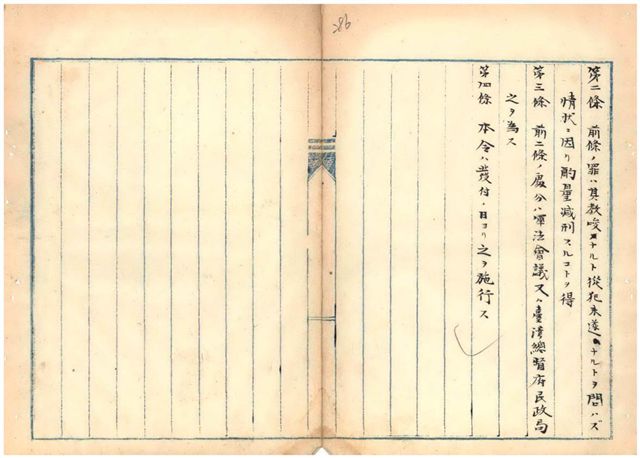 286
第二條 前條ノ罪ハ其教唆ナルト從犯未遂ナルトヲ問ハズ
情狀ニ因リ酌量減刑スルコトヲ得
第三條 前二條ノ處分ハ軍法會議又ハ臺灣總督府民政局
之ヲ為ス
第四條 本令ハ發付ノ日ヨリ之ヲ施行ス